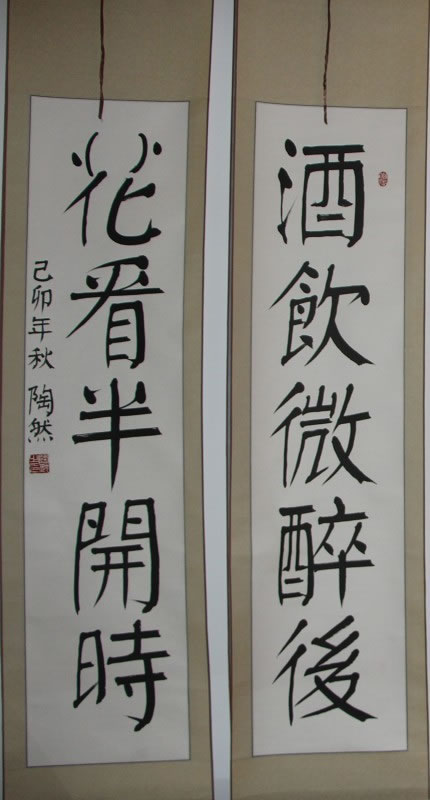 酒飲微醉後
花看半開時
己卯年秋 陶然